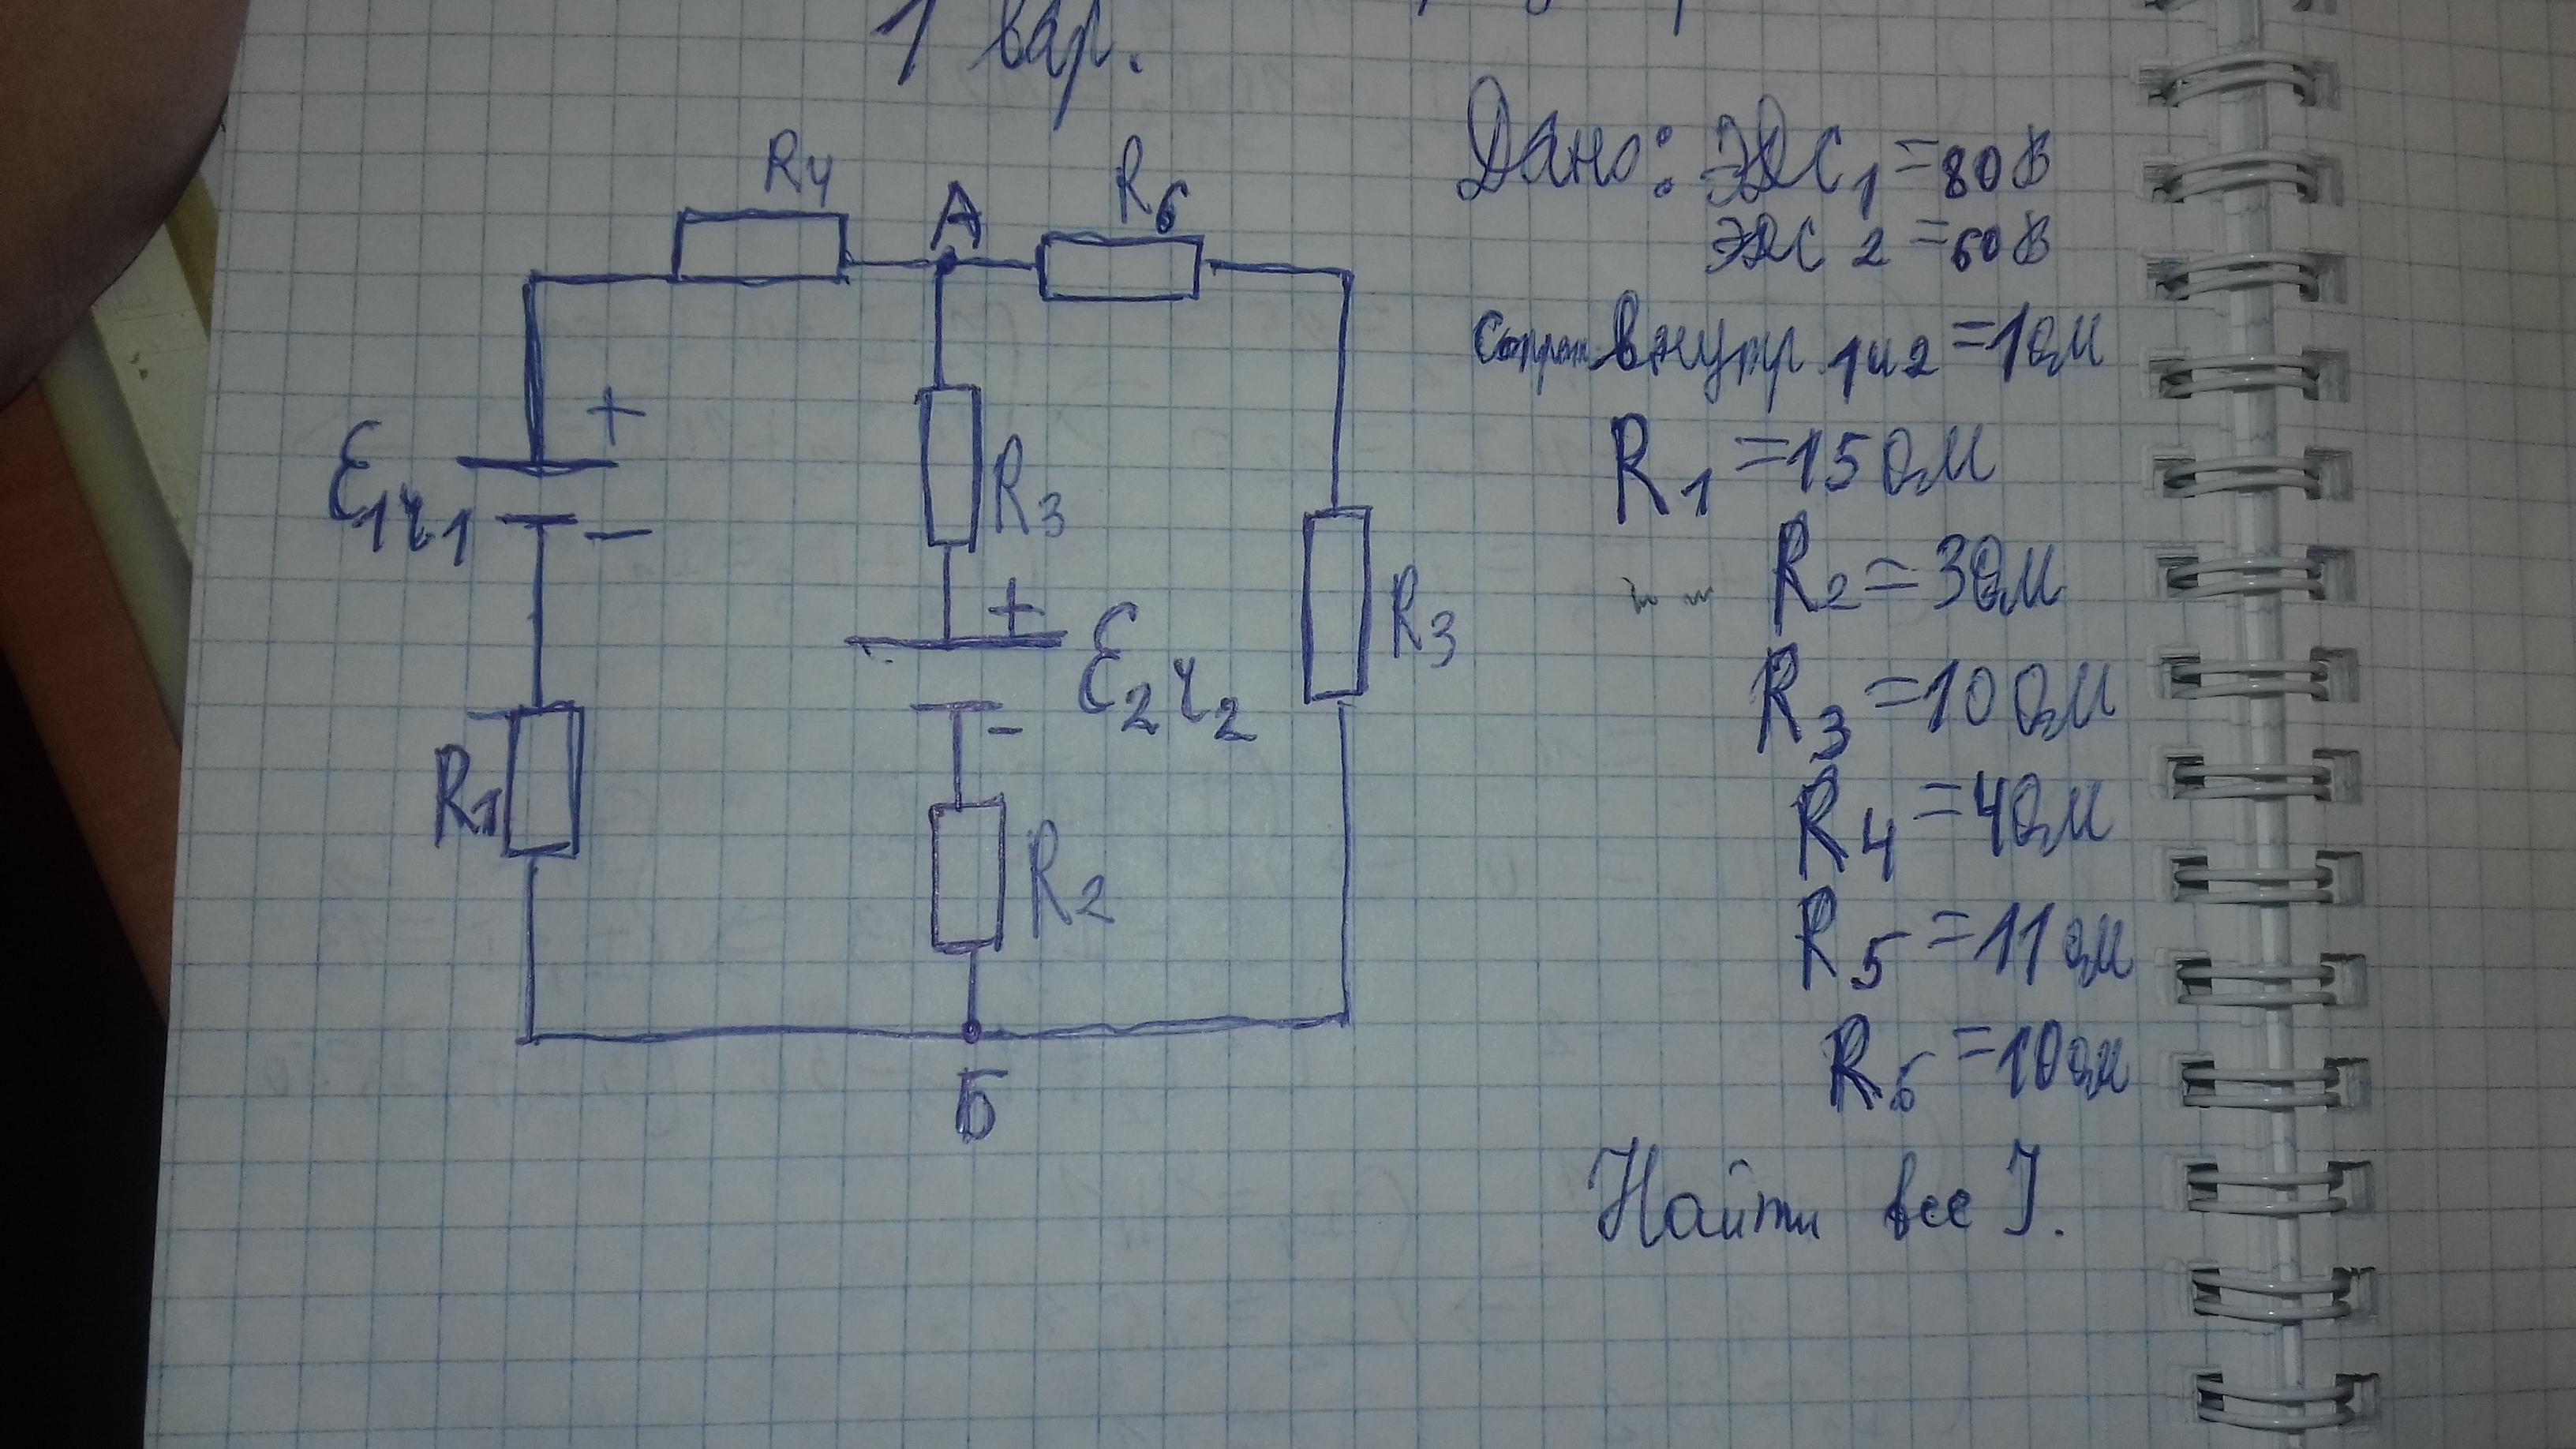 1 вар.
R4
A
R6
+
Ɛ1 r1
−
R1
R3
+
Ɛ2 r2
-
R2
R3
Б
Дано: ЭДС1 = 80 В
ЭДС 2 = 60 В
внутр. 1 и 2 = 1 Ом
R1 = 15 Ом
R2 = 3 Ом
R3 = 10 Ом
R4 = 4 Ом
R5 = 11 Ом
R6 = 10 Ом
Найти все I.